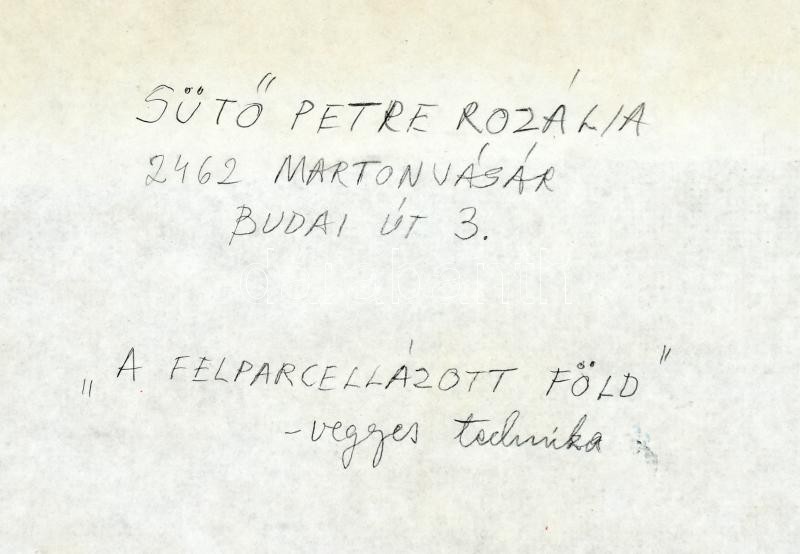 SÜTŐ PETRE ROZÁLIA
2462 MARTONVÁSÁR
BUDAI ÚT 3.
„A FELPARCELLÁZOTT FÖLD"
-vegyes technika